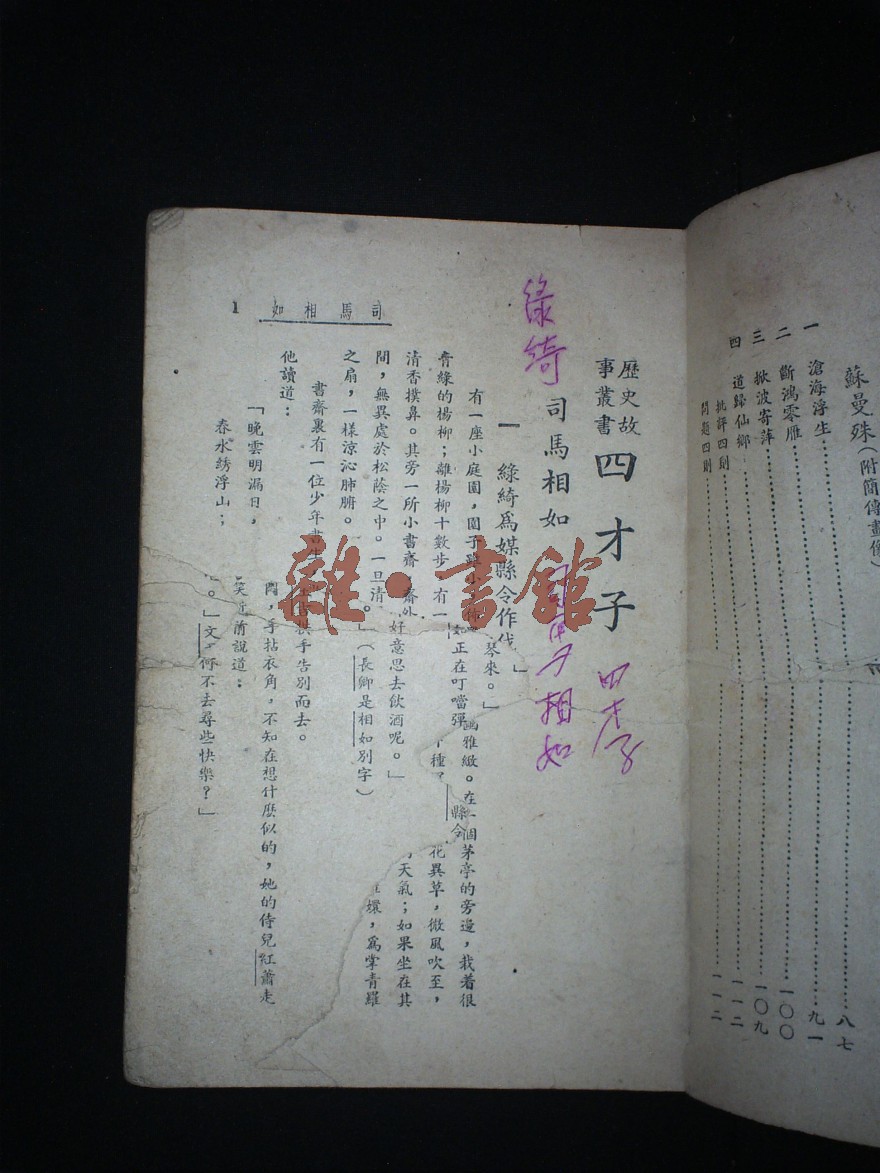 蘇曼殊(附簡傳畫像)……八七
一 滄海浮生……九一
二 斷鴻零雁……一〇〇
三 掀波寄萍……一〇九
四 道歸仙鄉……一一二
批評四則……一一二
問題四則
歷史故事叢書 四才子
四才子
司馬相如
綠綺
相如
一 綠綺為媒縣令作伐
有一座小庭園,園子雖小
雅緻。在一個茅亭的旁邊,栽着很
青綠的楊柳;離楊柳十數步 有一
花異草,微風吹至,
清香撲鼻。其旁一所小書齋
天氣;如果坐在其
間,無異處於松蔭之中。一旦清
環,為掌青羅
之扇,一樣涼沁肺腑。
書齋裏有一位少年書生
他讀道:
「晚雲明漏日,
春水綉浮山;
琴來。」
她正在叮噹彈
縣令
好意思去飲酒呢。」
。」(長卿是相如別字)
拱手告別而去。
悶,手拈衣角,不知在想什麼似的,她的侍兒紅蕭走
笑近前說道:
。」文 何不去尋些快樂?」
司馬相如
1
雜·書館